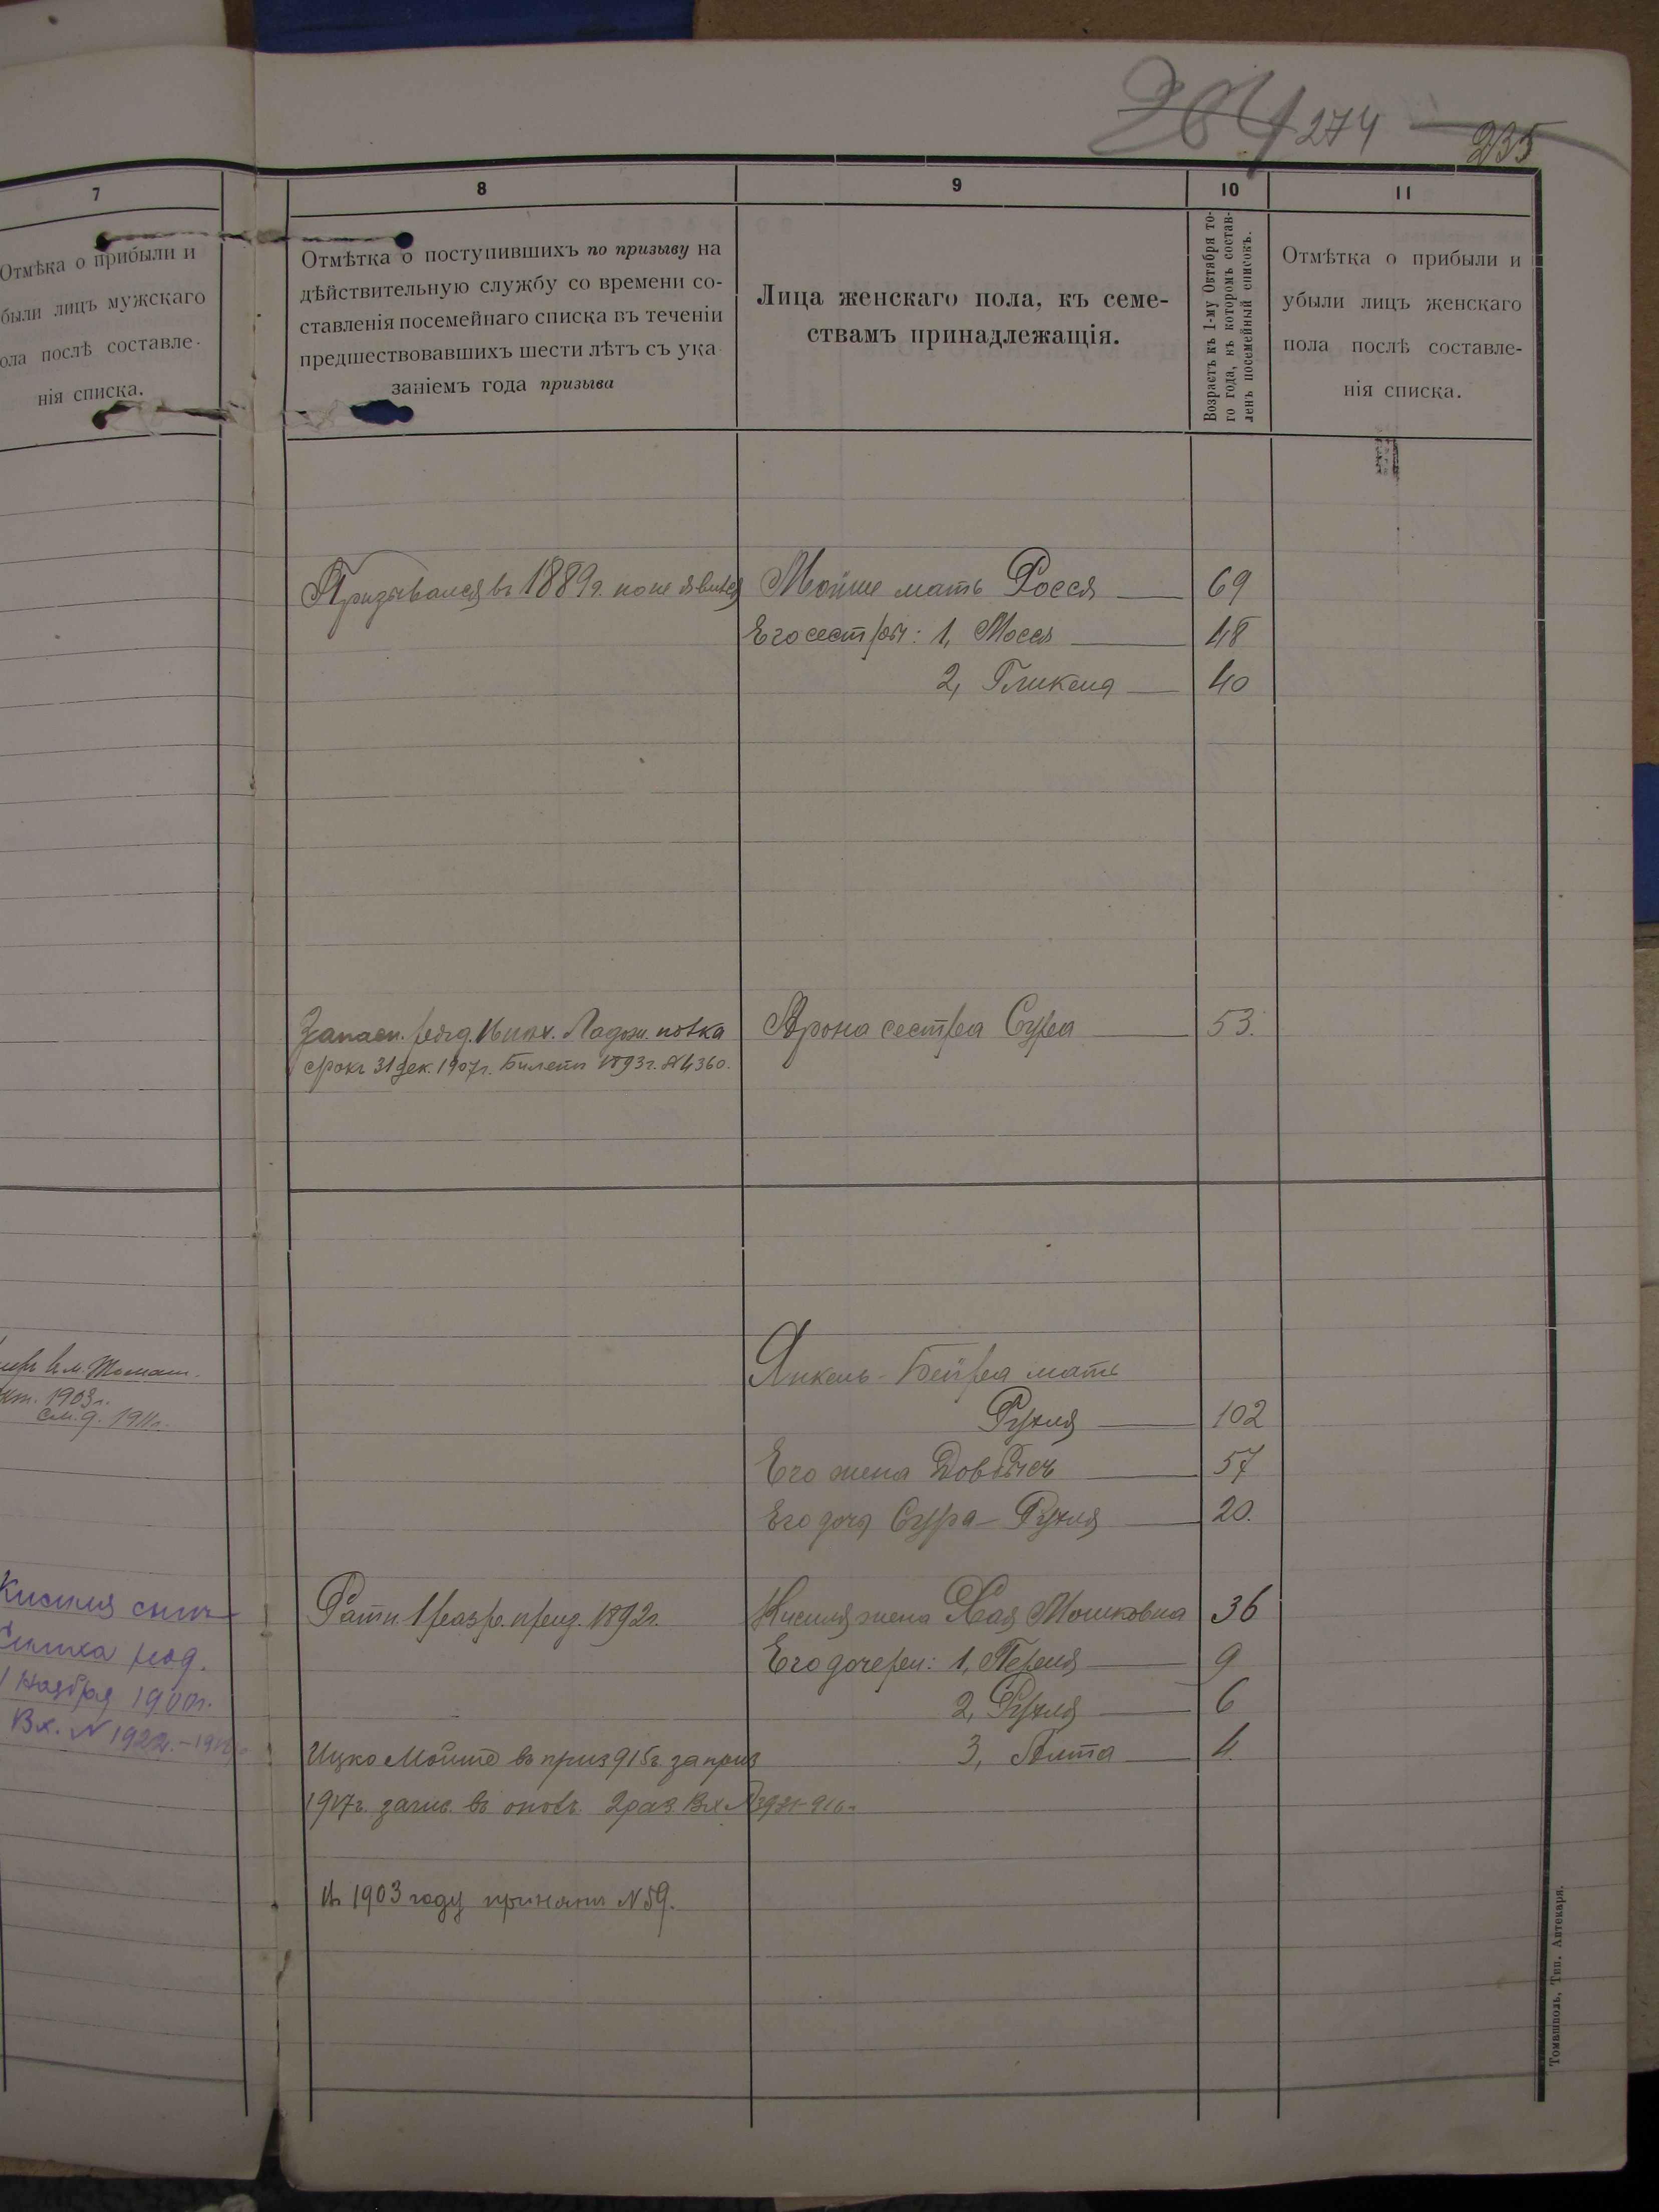 264 274 235
7
Отмѣка о прибыли и
были лицъ мужскаго
ола послѣ составле-
нія списка.
8
Отмѣтка о поступившихъ по призыву на
дѣйствительную службу со времени со-
ставленія посемейнаго списка въ теченіи
предшествовавшихъ шести лѣтъ съ ука
заніемъ года призыва
9
Лица женскаго пола, къ семе-
ствамъ принадлежащія.
10
Возрастъ къ 1-му Октября то-
го года, къ которомъ состав-
ленъ посемейный списокъ.
11
Отмѣтка о прибыли и
убыли лицъ женскаго
пола послѣ составле-
нія списка.
Призывался въ 1889 г. но не явился
Мойше мать Росся 69
Его сестры: 1, Мося 48
2, Гликеля 40
Запасн. 16 пѣх. Ладож. полка
срокъ 31 дек. 1907 г. Билетъ 1893 г. № 4360.
Арона сестра Сура 53.
1903 г.
см. д. 1911 г.
Янкель-Бейра мать
Рухля 102
Его жена 57
Его дочь Сура-Рухля 20.
Кисиля сынъ
род.
1 Ноября 1900 г.
Вх. № 1922.
Ратн. 1 разр. приз. 1892 г.
Кисиля жена Хая Мошковна 36
Его дочери: 1, Перля 9
2, Рухля 6
3, Алта 4
Ицко Мойше въ приз 915 г. за приз
1917 г. зачис. въ 2 раз Вх №
Въ 1903 году принятъ № 59.
Томашполь, Тип. Аптекаря.